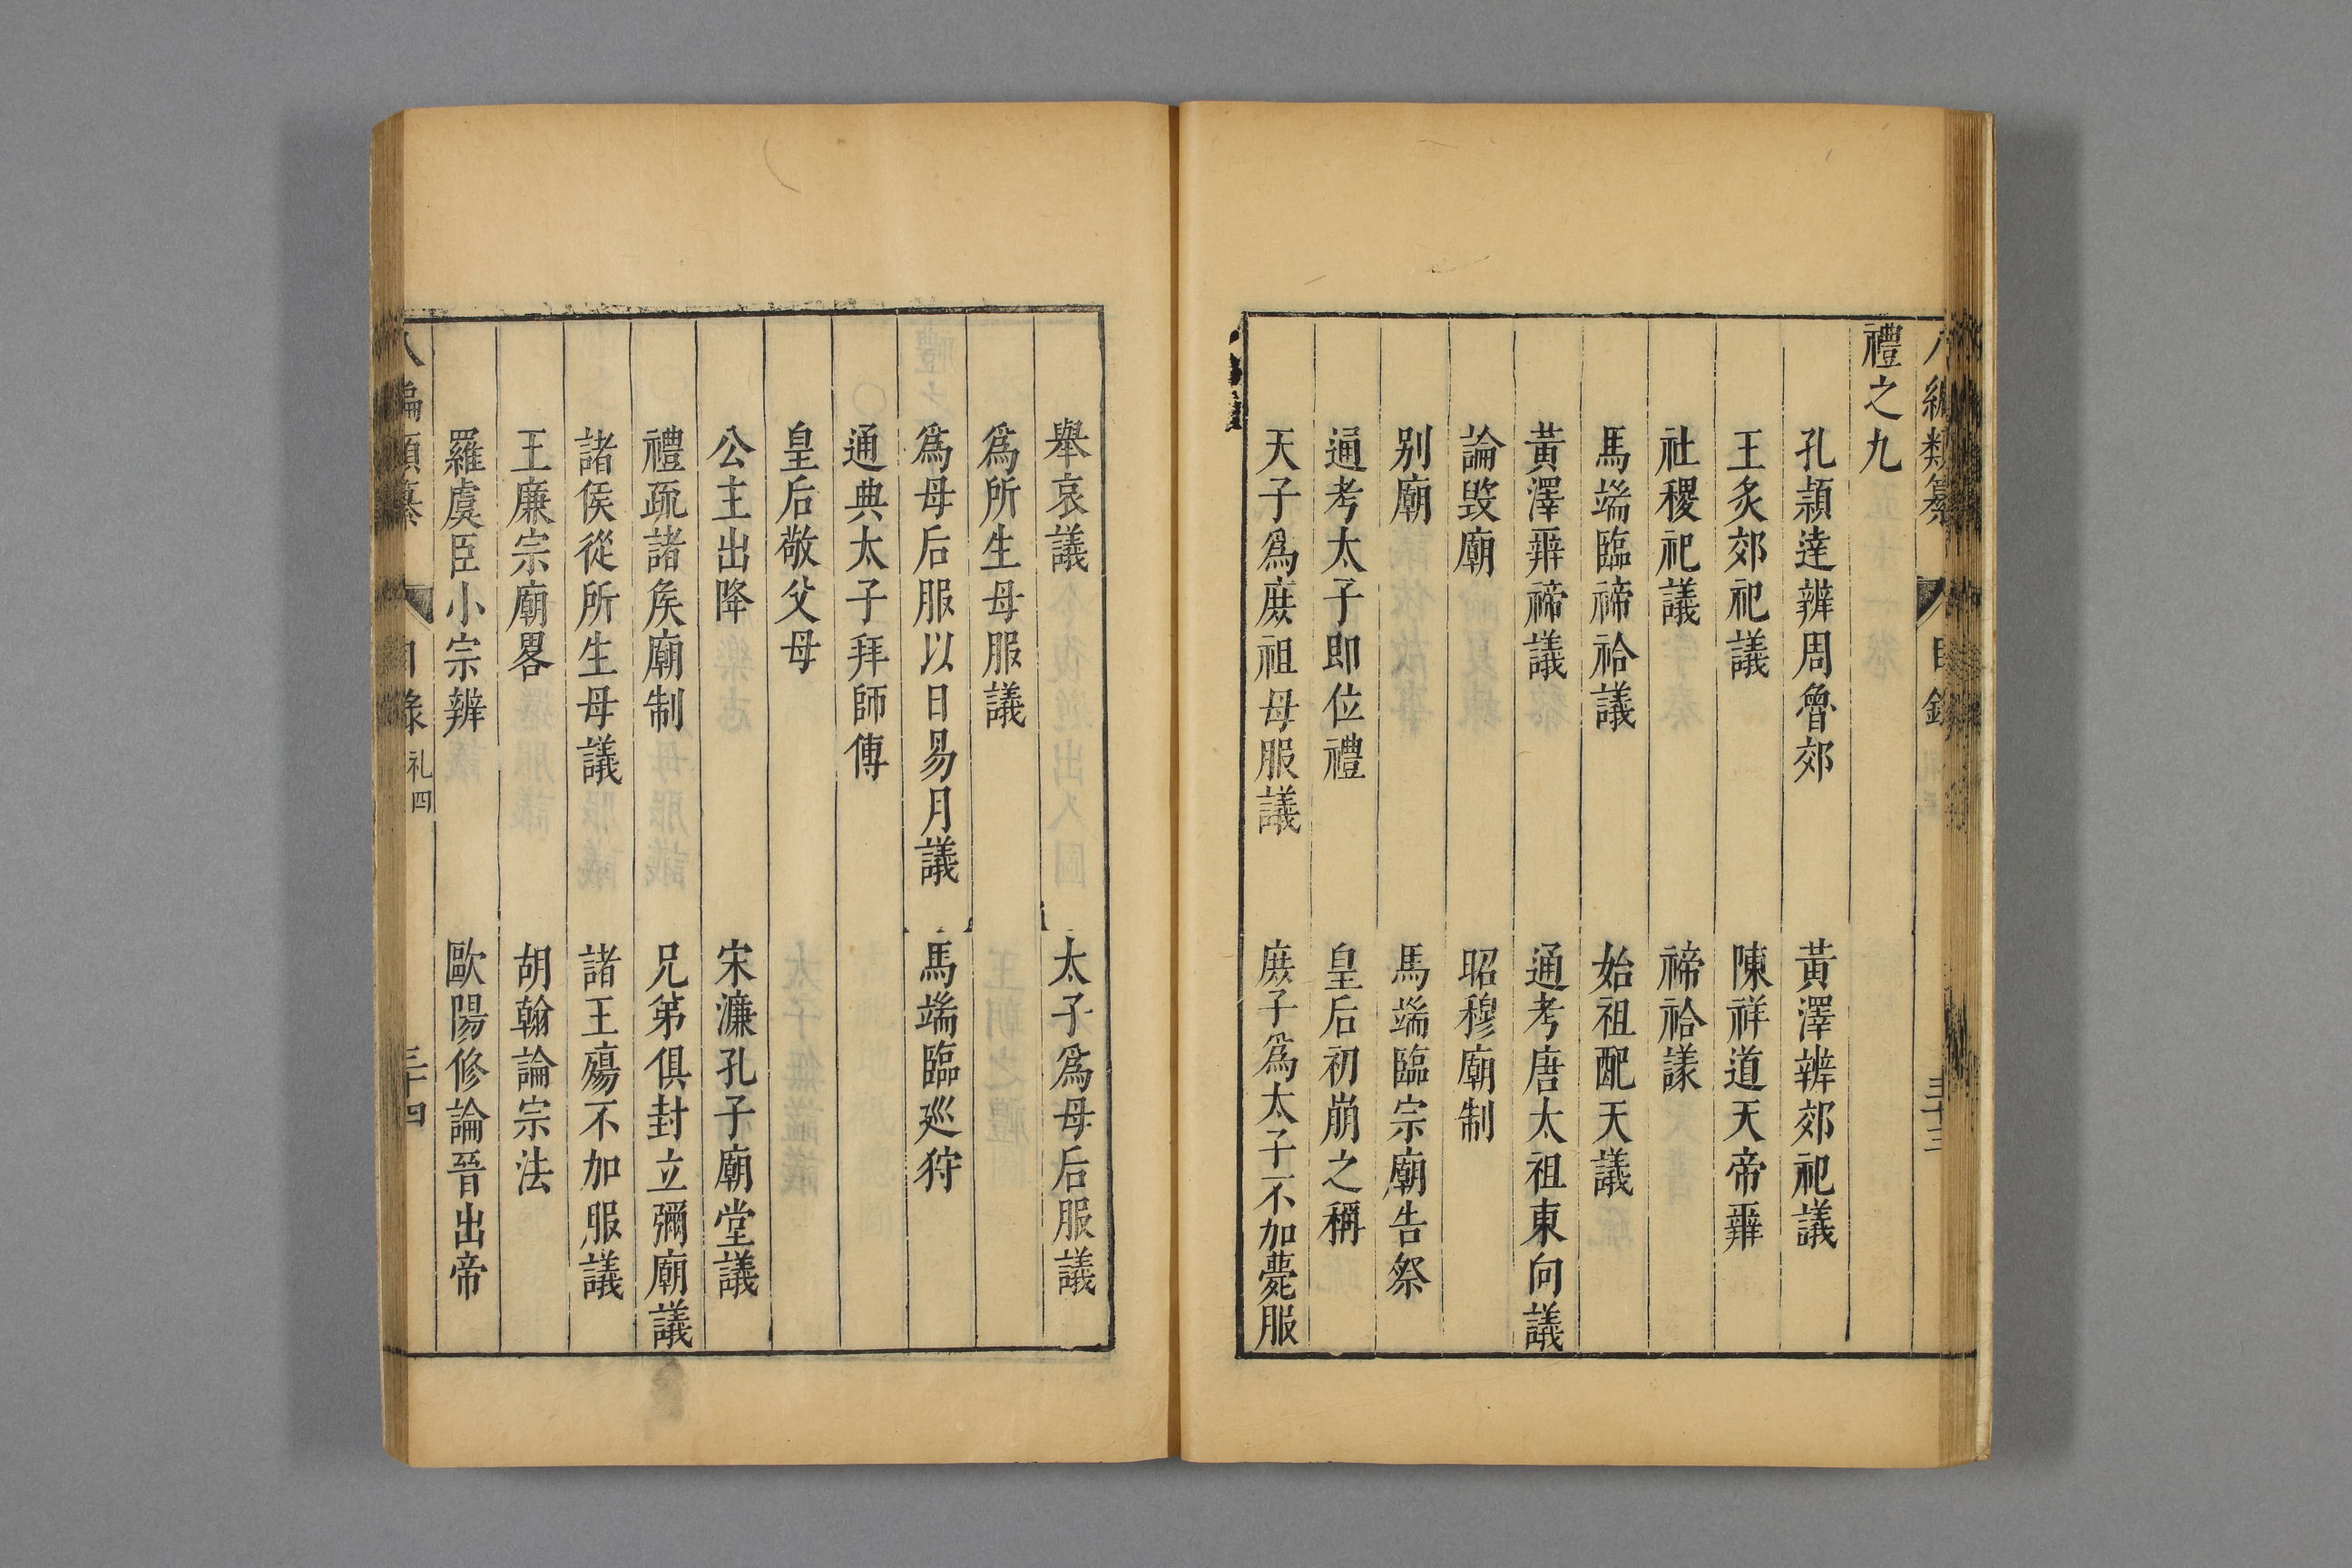 八編類纂 目錄 三十三
禮之九
孔頴逹辨周魯郊 黃澤辨郊祀議
王炙郊祀議 陳祥道天帝辨
社稷祀議 禘祫議
馬端臨禘祫議 始祖配天議
黃澤辨禘議 通考唐太祖東向議
論毀廟 昭穆廟制
别廟 馬端臨宗廟告祭
通考太子即位禮 皇后初崩之稱
天子爲庶祖母服議 庶子爲太子不加薨服
舉哀議 太子爲母后服議
爲所生母服議
爲母后服以日易月議 馬端臨廵狩
通典太子拜師傅
皇后敬父母
公主出降 宋濂孔子廟堂議
禮疏諸侯廟制 兄弟俱封立彌廟議
諸侯從所生母議 諸王殤不加服議
王廉宗廟畧 胡翰論宗法
羅虞臣小宗辨 歐陽修論晉出帝
八編類纂 目錄 礼四 三十四